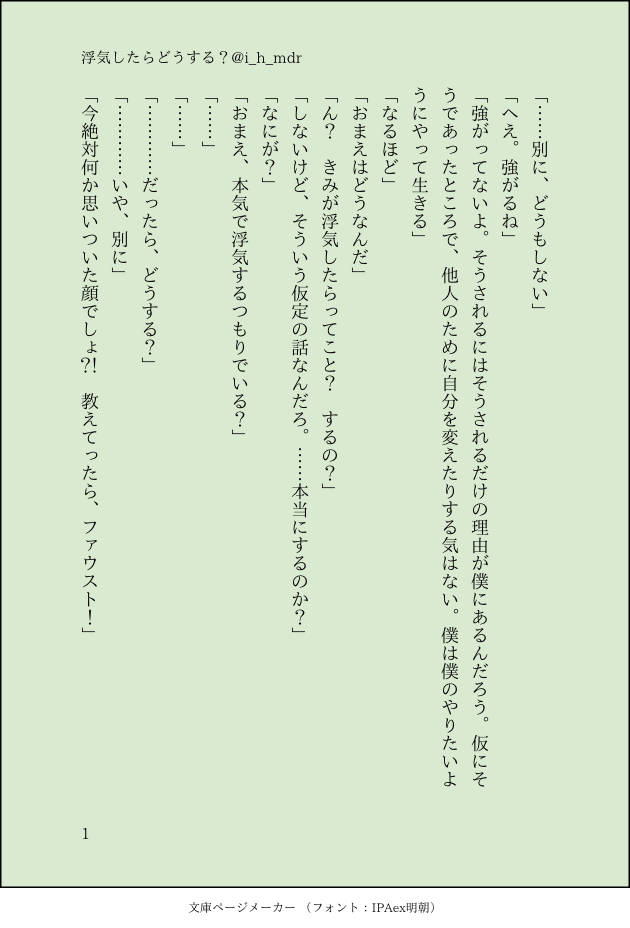 浮気したらどうする？@i_h_mdr
「……別に、どうもしない」
「へえ。強がるね」
「強がってないよ。そうされるにはそうされるだけの理由が僕にあるんだろう。仮にそ
うであったところで、他人のために自分を変えたりする気はない。僕は僕のやりたいよ
うにやって生きる」
「なるほど」
「おまえはどうなんだ」
「ん？　きみが浮気したらってこと？　するの？」
「しないけど、そういう仮定の話なんだろ。……本当にするのか？」
「なにが？」
「おまえ、本気で浮気するつもりでいる？」
「……」
「……」
「…………だったら、どうする？」
「…………いや、別に」
「今絶対何か思いついた顔でしょ?!　教えてったら、ファウスト！」
1
文庫ページメーカー （フォント：IPAex明朝）